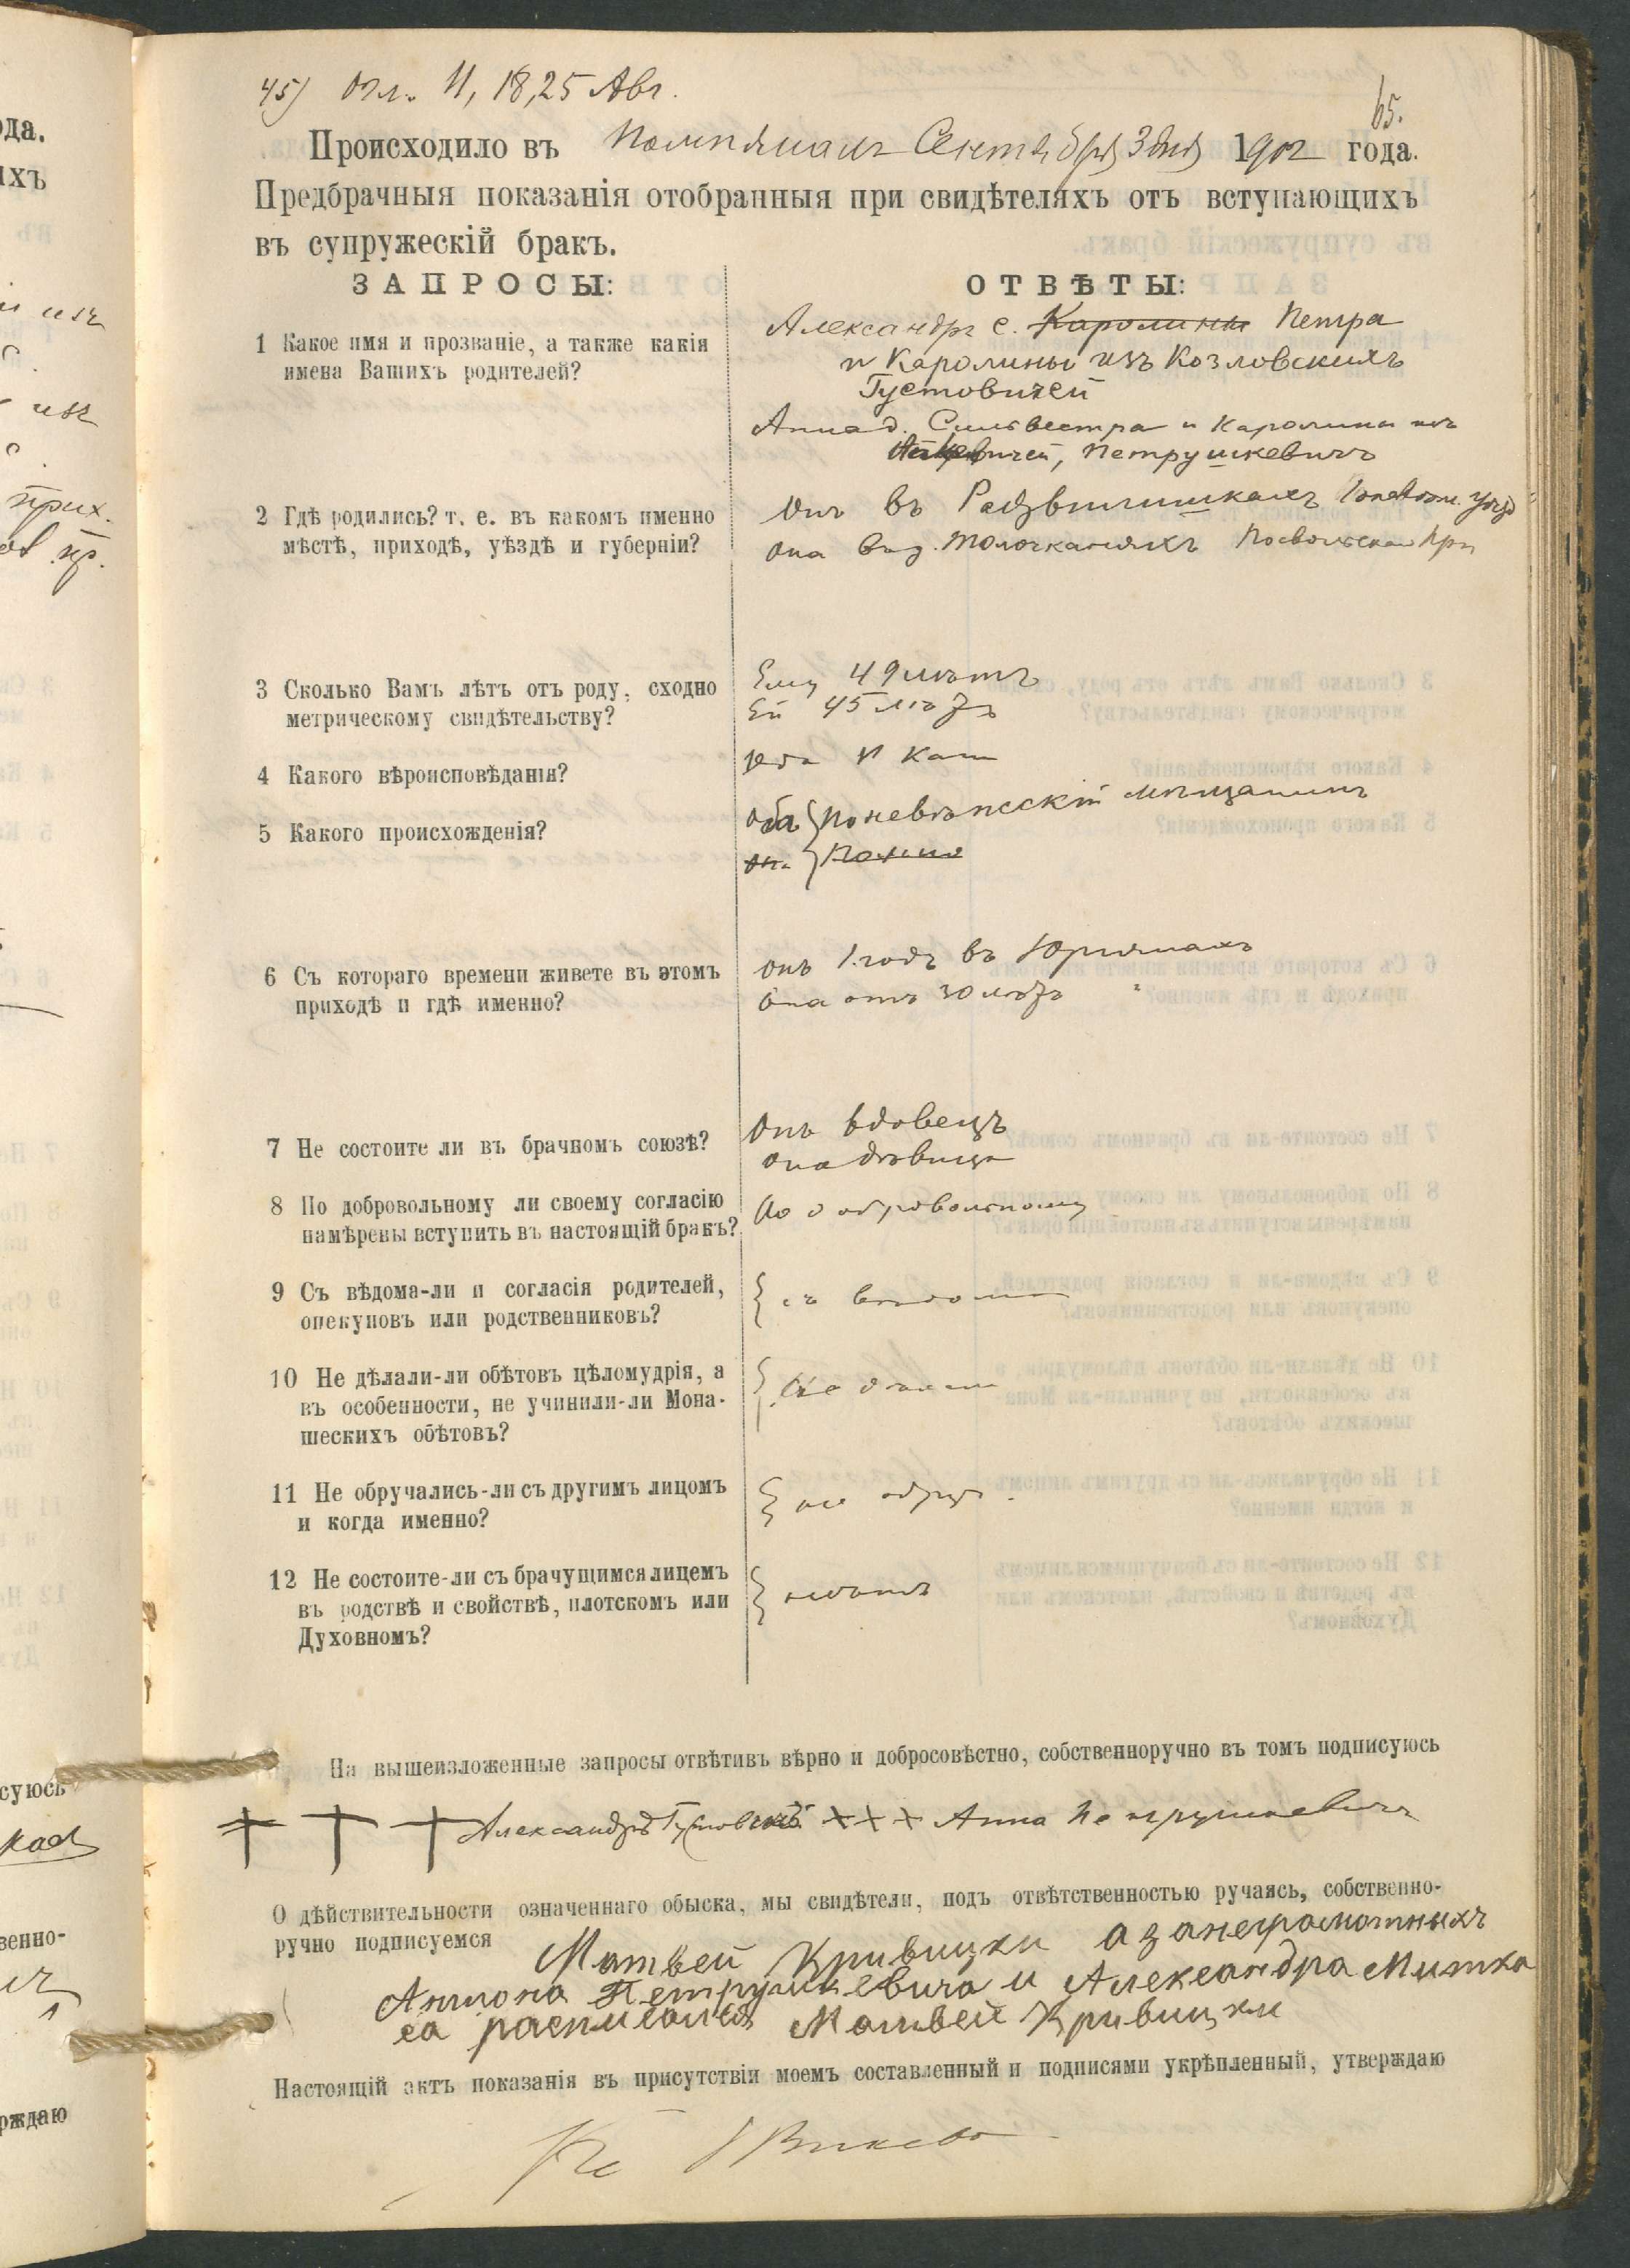 ода.
ихъ
изъ
изъ
прих.
пр.
суюсь
венно-
рждаю
45) Огл. 11, 18, 25 Авг.
65.
Происходило въ Помпянахъ Сентября 3 дня 1902 года.
Предбрачныя показанія отобранныя при свидѣтеляхъ отъ вступающихъ
въ супружескій бракъ.
ЗАПРОСЫ:
ОТВѢТЫ:
1 Какое имя и прозваніе, а также какія
имена Вашихъ родителей?
Александръ с. Каролины Петра
и Каролины изъ Козловскихъ
Густовичей
Анна д. Сильвестра и Каролины изъ
Петрушкевичъ
2 Гдѣ родились? т. е. въ какомъ именно
мѣстѣ, приходѣ, уѣздѣ и губерніи?
Онъ въ Радзвилишкахъ Поневѣж. уѣзд
Она въ д. Толочканяхъ Посвольскаго пр
3 Сколько Вамъ лѣтъ отъ роду, сходно
метрическому свидѣтельству?
Ему 49 лѣтъ
Ей 45 лѣтъ
4 Какого вѣроисповѣданія?
Р Кат
5 Какого происхожденія?
оба Поневѣжскій мѣщанинъ
он.
6 Съ котораго времени живете въ этомъ
приходѣ и гдѣ именно?
Онъ 1 годъ въ Юрянахъ
Она отъ 30 лѣтъ "
7 Не состоите ли въ брачномъ союзѣ?
Онъ вдовецъ
Она дѣвица
8 По добровольному ли своему согласію
намѣрены вступить въ настоящій бракъ?
По добровольному
9 Съ вѣдома-ли и согласія родителей,
опекуновъ или родственниковъ?
съ вѣдома
10 Не дѣлали-ли обѣтовъ цѣломудрія, а
въ особенности, не учинили-ли Мона-
шескихъ обѣтовъ?
Не дѣлали
11 Не обручались-ли съ другимъ лицомъ
и когда именно?
не обруч.
12 Не состоите-ли съ брачущимся лицемъ
въ родствѣ и свойствѣ, плотскомъ или
Духовномъ?
нѣтъ
На вышеизложенные запросы отвѣтивъ вѣрно и добросовѣстно, собственноручно въ томъ подписуюсь
+ + + Александръ Густовичъ + + + Анна Петрушкевичъ
О дѣйствительности означеннаго обыска, мы свидѣтели, подъ отвѣтственностью ручаясь, собственно-
ручно подписуемся
Матвей Кривицки а за неграмотныхъ
Антона Петрушкевича и Александра Митка
са росписался Матвей Кривицки
Настоящій актъ показанія въ присутствіи моемъ составленный и подписями укрѣпленный, утверждаю